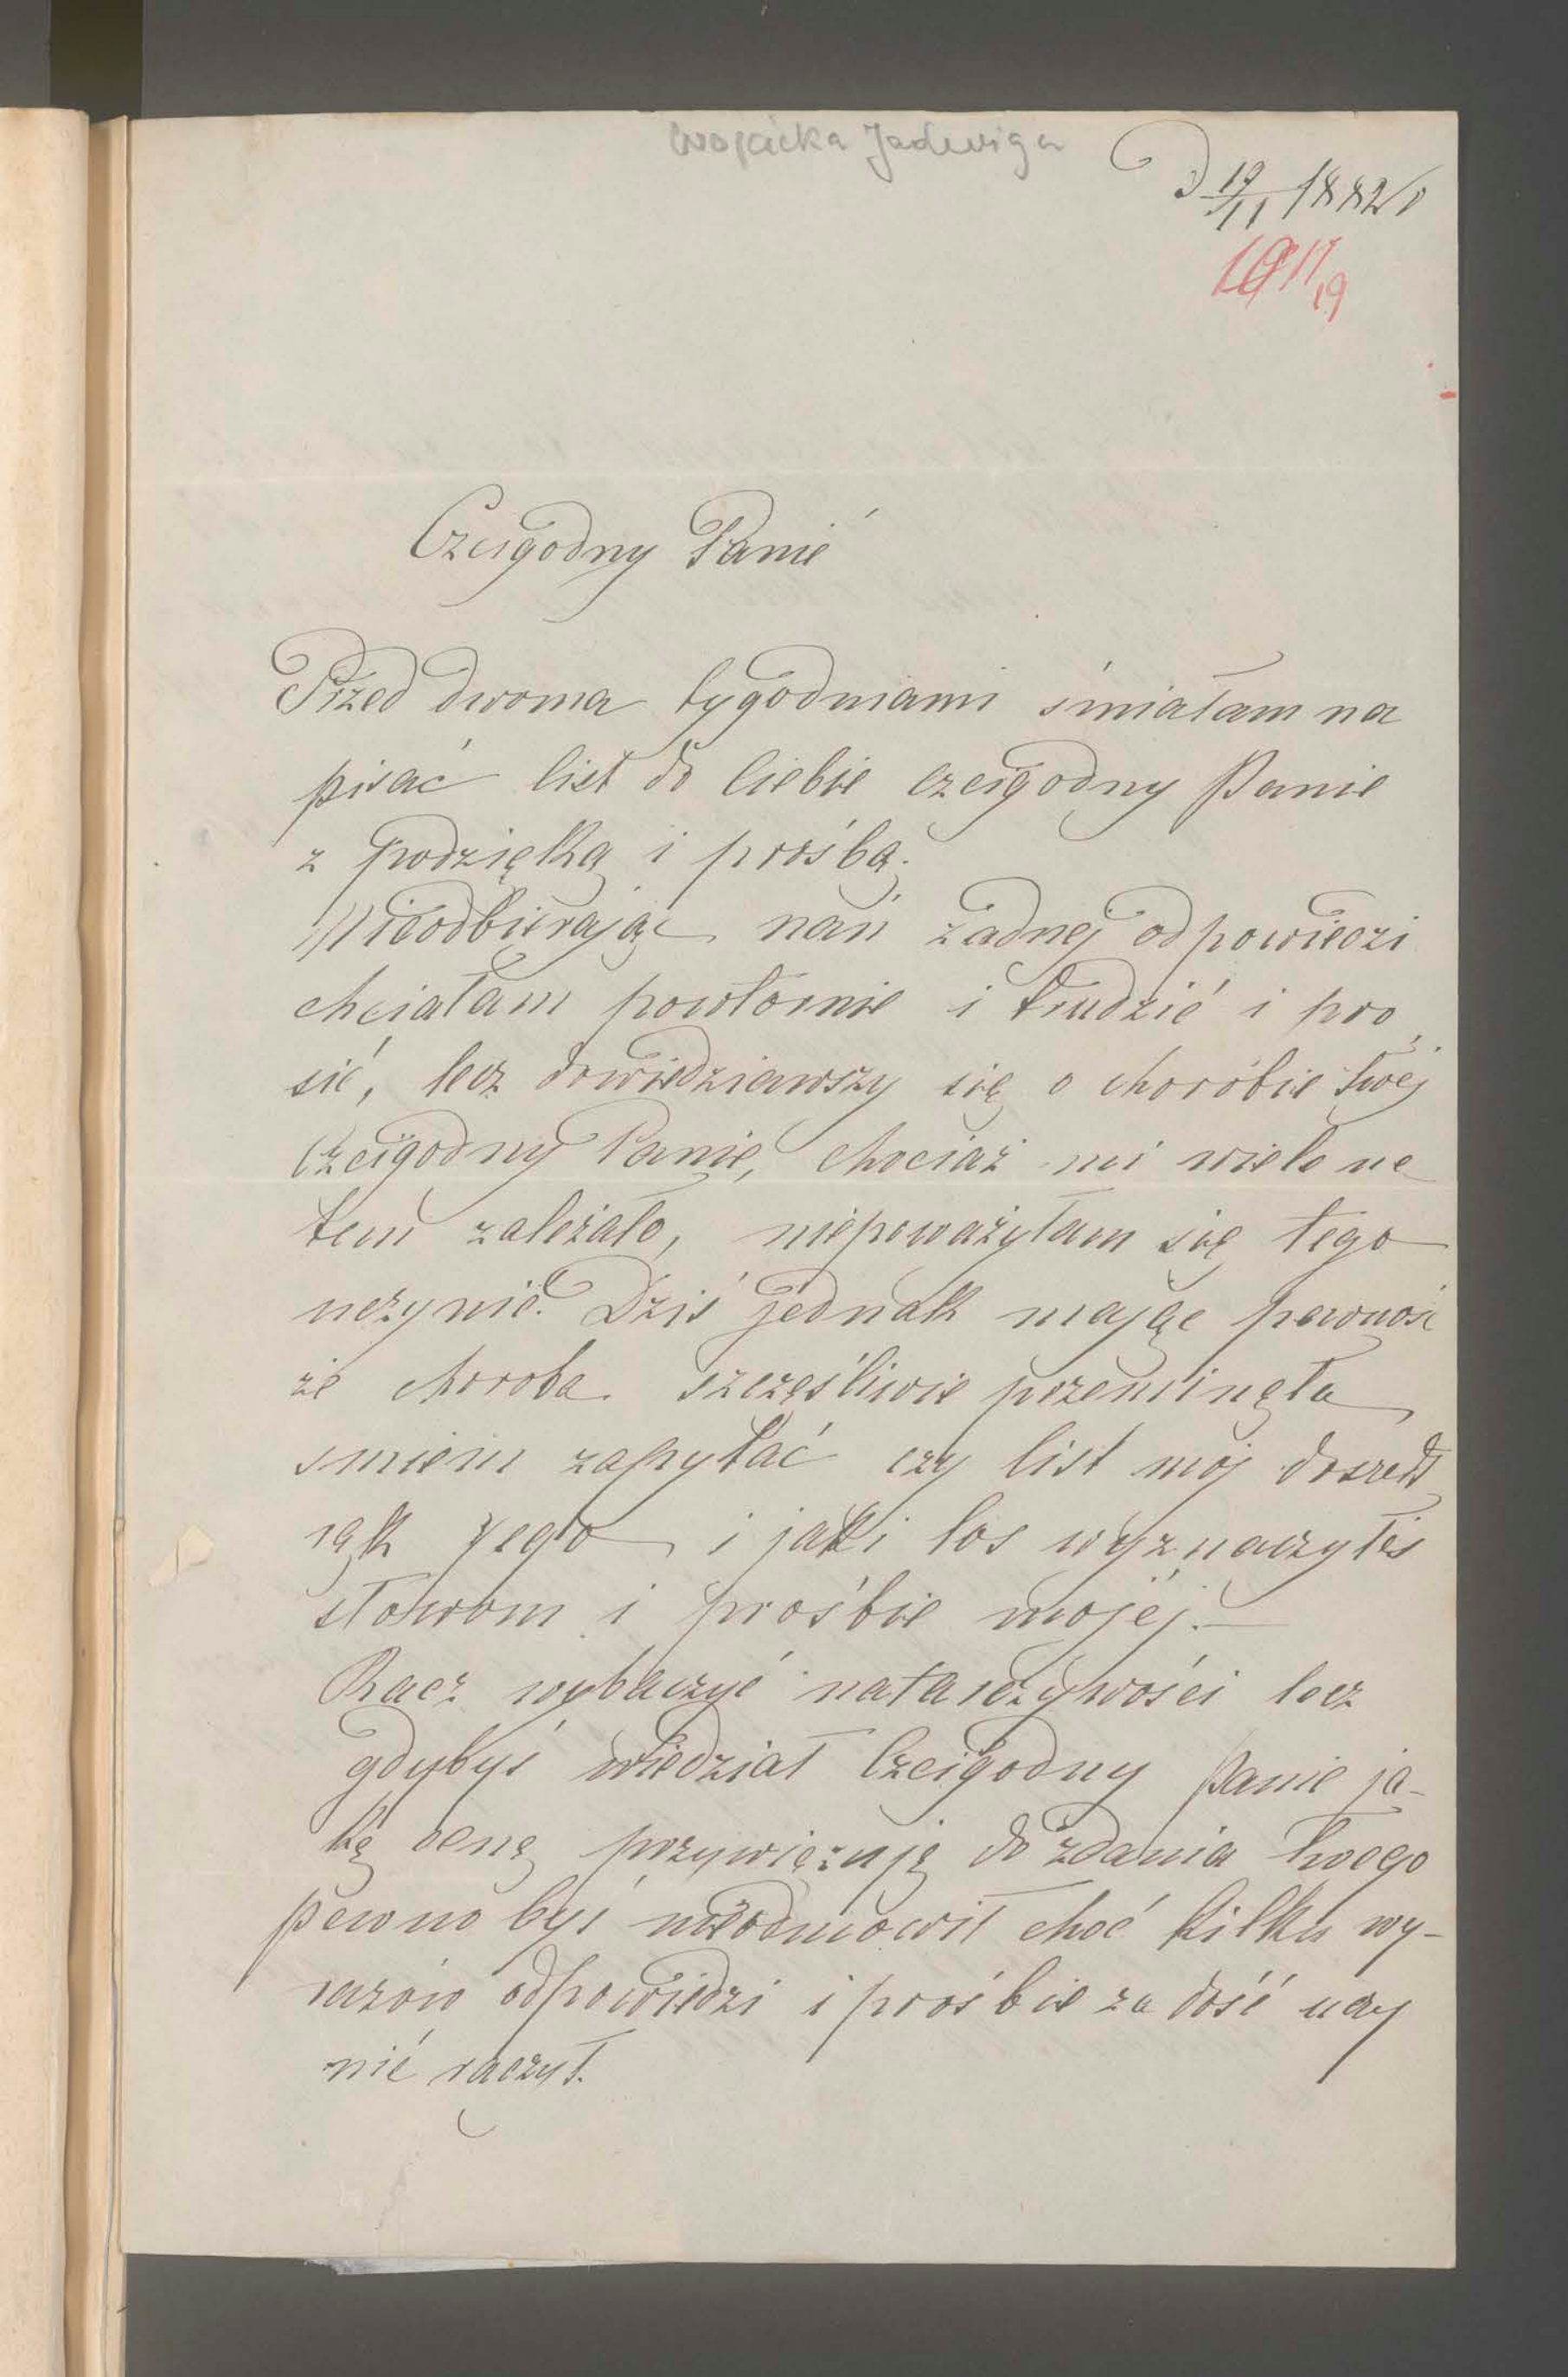 Wojcicka Jadwiga
D 19/11 1882 r
19
Czcigodny Panie
Przed dwoma tygodniami śmiałam na
pisać list do Ciebie czcigodny Panie
z podzięką i prośbą.
Nieodbierając nań żadnej odpowiedzi
chciałam powtórnie i trudzić i pro
sić, lecz dowiedziawszy się o choróbie twéj
Czcigodny Panie, chociaż mi wiele na
tem zależało, niepoważyłam się tego
uczynić. Dziś jednak mając pewność
że choroba szczęśliwie przeminęła
śmiem zapytać czy list mój doszedł
rąk Jego i jaki los wyznaczyłeś
słowom i prośbie mojéj. —
Racz wybaczyć natarczywości lecz
gdybyś wiedział Czcigodny Panie ja-
ką cenę przywięzuję do zdania twego
pewno byś nieodmówił choć kilku wy-
razów odpowiedzi i prośbie za dość uczy
nić raczył.